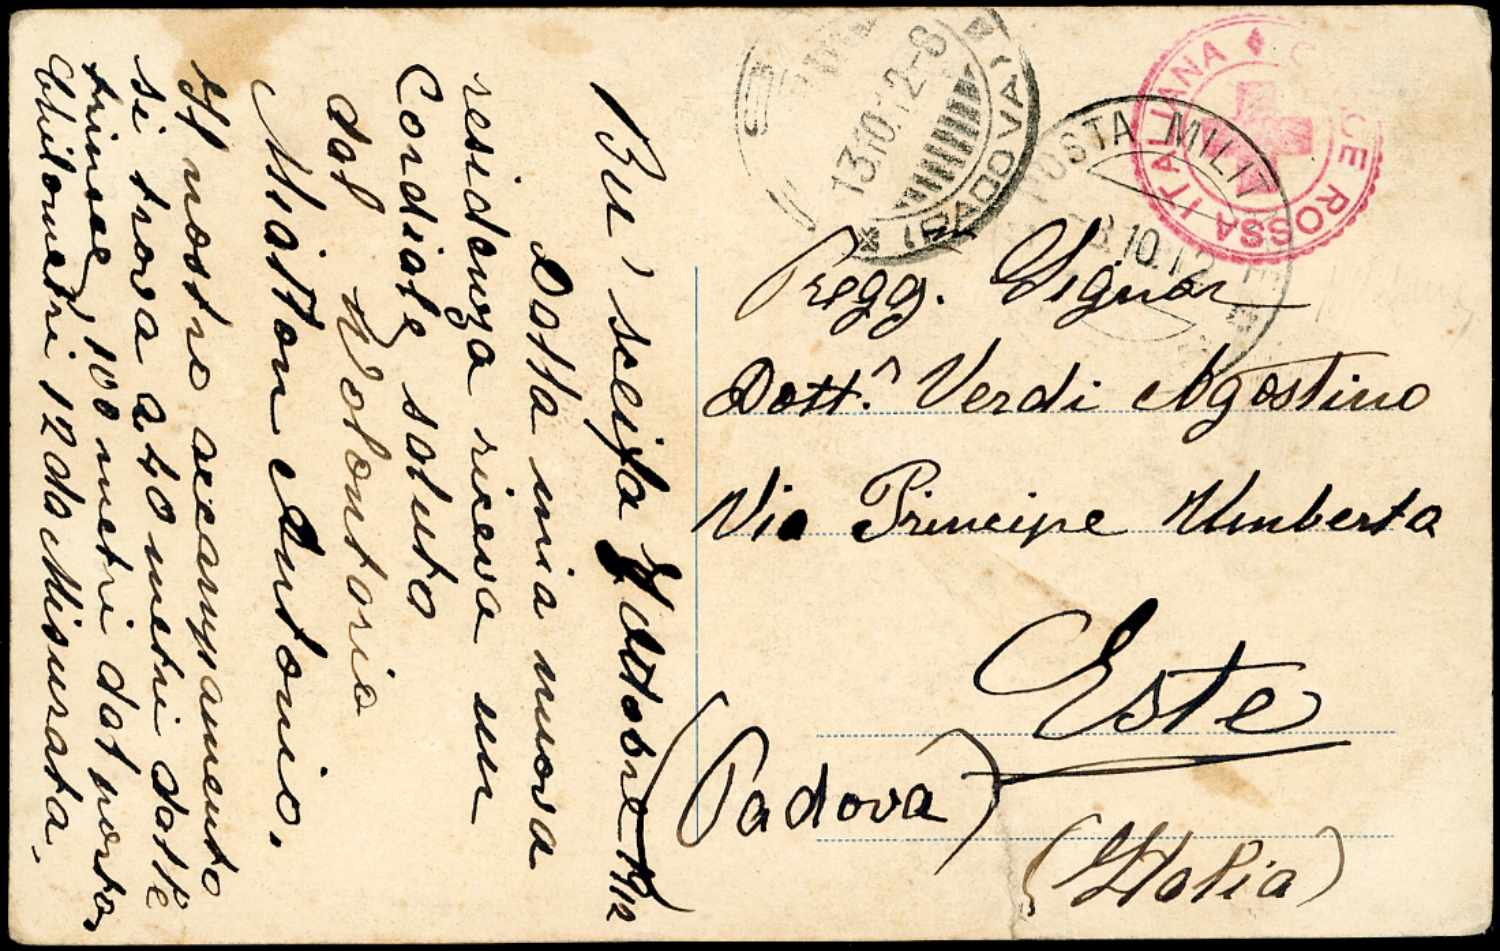 Bu' sceifa 7 Ottobre 1912
Dalla mia nuova
residenza riceva un
Cordiale saluto
dal Volontario
Miatton Antonio.
Il nostro accampamento
si trova a 40 metri dalle
trincee, 100 metri dal porto,
Chilometri 12 da Misurata.
13.10.12-8
(PADOVA)
POSTA MILIT
8.10.12
CROCE ROSSA ITALIANA
Pregg. Signor
Dott.r Verdi Agostino
Via Principe Umberto
Este
(Padova)
(Italia)